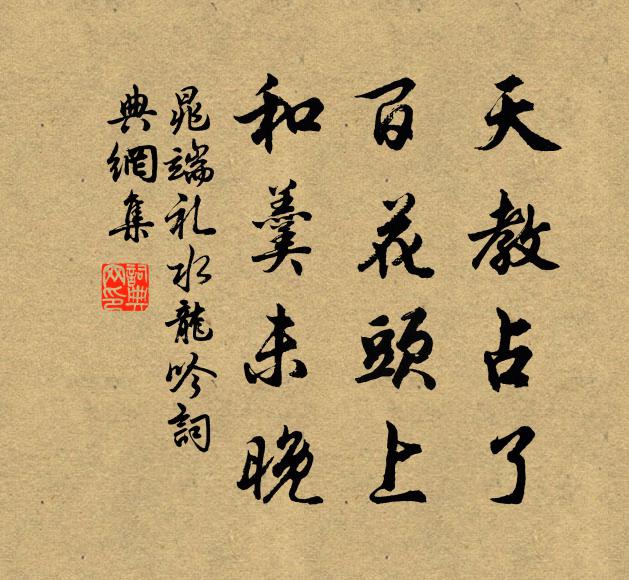 天教占了
百花頭上
和羹未晚
晁端礼水龍吟詞
典網集
詞典网印